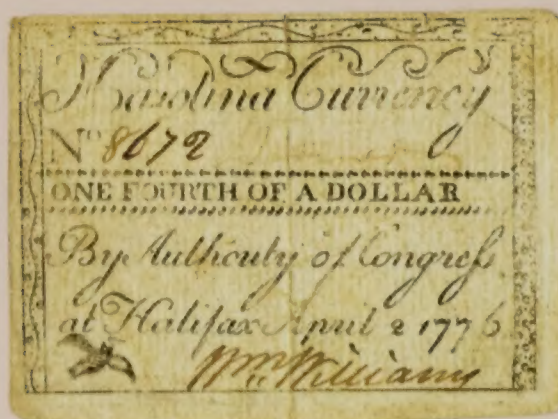 N Carolina Currency
No 8672
ONE FOURTH OF A DOLLAR
By Authority of Congreſs
at Halifax April 2 1776
Wm Williams